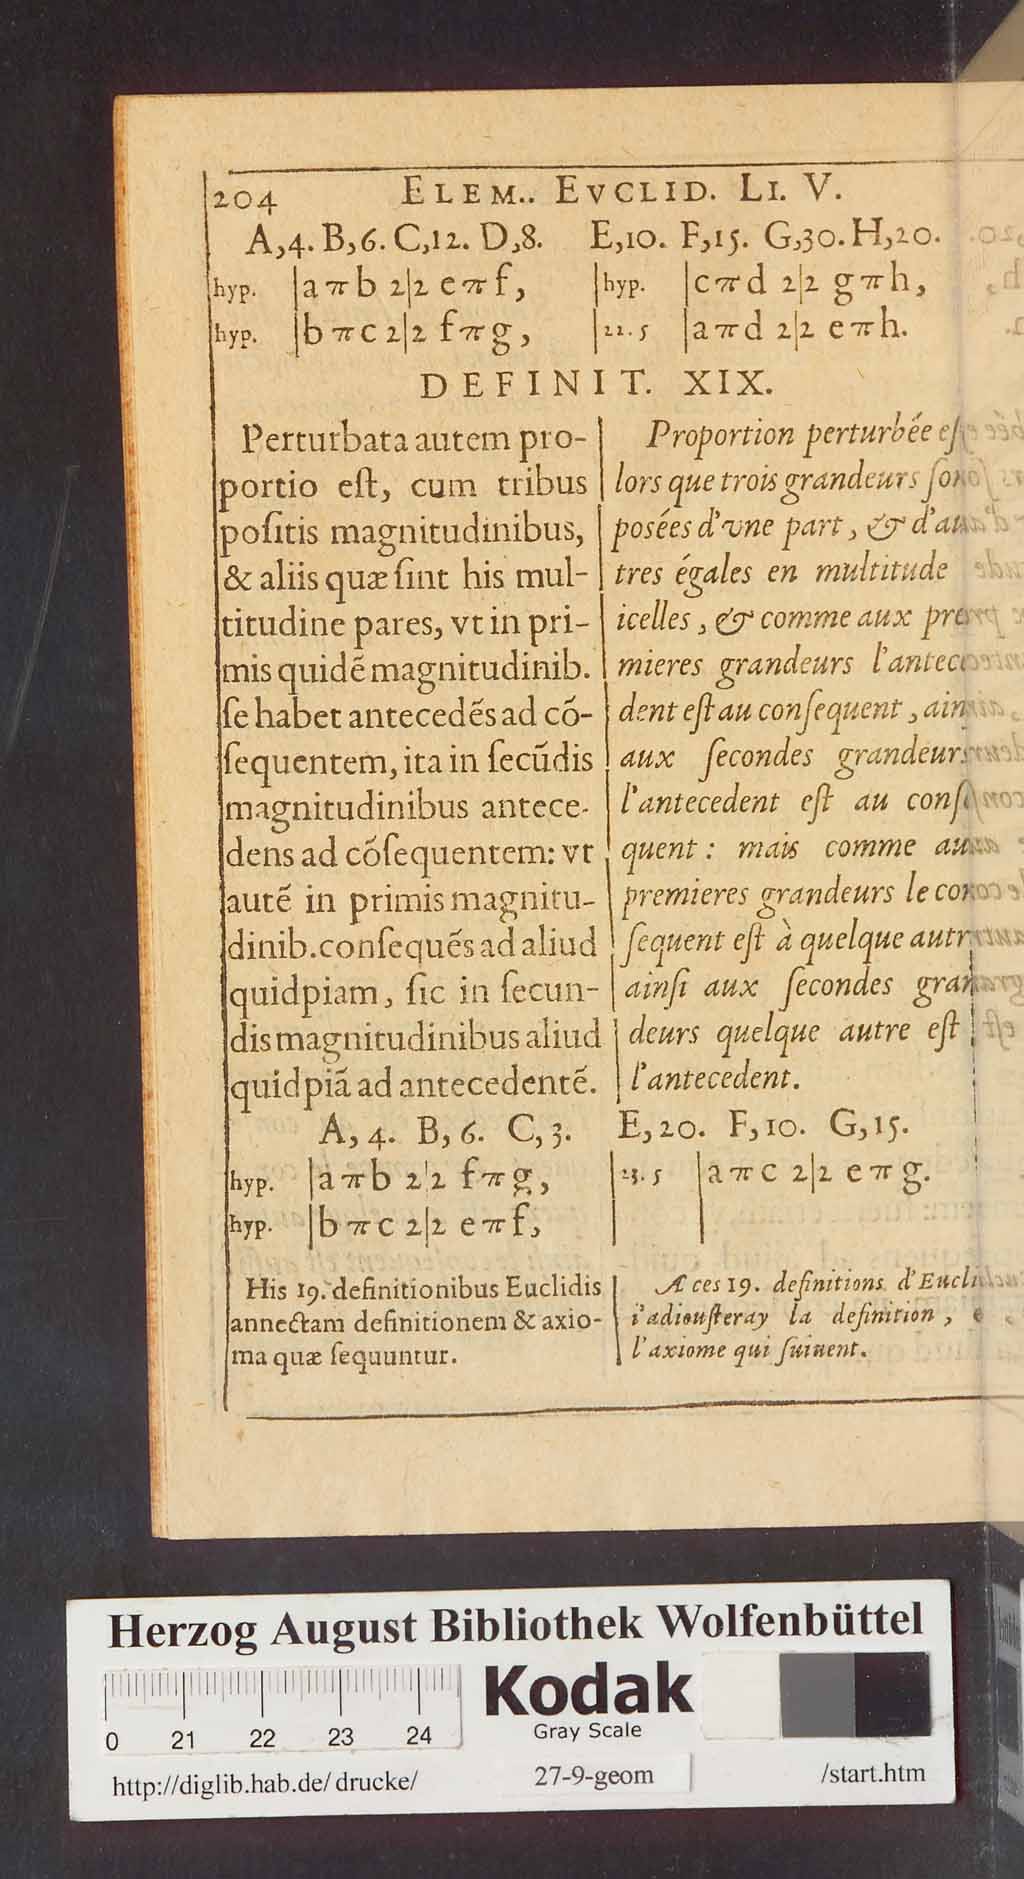 204 ELEM.. EVCLID. LI. V.
A,4. B,6. C,12. D,8. E,10. F,15. G,30. H,20.
hyp. |a π b 2|2 e π f, |hyp. |c π d 2|2 g π h,
hyp. |b π c 2|2 f π g, |22.5 |a π d 2|2 e π h.
DEFINIT. XIX.
Perturbata autem pro-
portio eſt, cum tribus
poſitis magnitudinibus,
& aliis quæ ſint his mul-
titudine pares, vt in pri-
mis quidẽ magnitudinib.
ſe habet antecedẽs ad cõ-
ſequentem, ita in ſecũdis
magnitudinibus antece-
dens ad cõſequentem: vt
autẽ in primis magnitu-
dinib. conſequẽs ad aliud
quidpiam, ſic in ſecun-
dis magnitudinibus aliud
quidpiã ad antecedentẽ.
Proportion perturbée eſt
lors que trois grandeurs ſon
posées d'vne part, & d'au
tres égales en multitude
icelles, & comme aux pre
mieres grandeurs l'antece
dent eſt au conſequent, ain
aux ſecondes grandeurs
l'antecedent eſt au conſe
quent: mais comme au
premieres grandeurs le con
ſequent eſt à quelque autr
ainſi aux ſecondes gran
deurs quelque autre eſt
l'antecedent.
A, 4. B, 6. C, 3. E, 20. F, 10. G, 15.
hyp. |a π b 2|2 f π g, |23.5 |a π c 2|2 e π g.
hyp. |b π c 2|2 e π f,
His 19. definitionibus Euclidis
annectam definitionem & axio-
ma quæ ſequuntur.
A ces 19. definitions d'Eucli
i'adiouſteray la definition,
l'axiome qui ſuiuent.
Herzog August Bibliothek Wolfenbüttel
Kodak
Gray Scale
0 21 22 23 24
http://diglib.hab.de/drucke/ 27-9-geom /start.htm